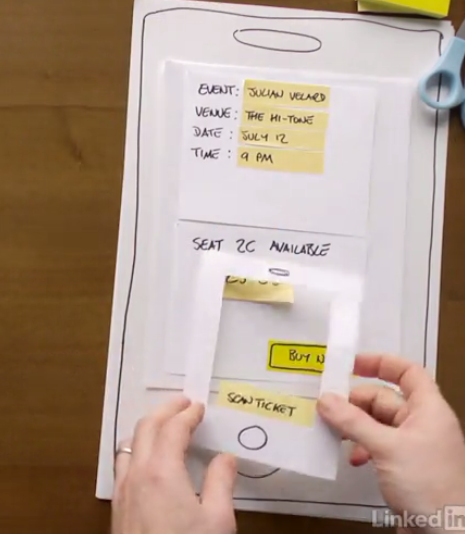 EVENT: JULIAN VELARD
VENUE: THE HI-TONE
DATE: JULY 12
TIME: 9 PM
SEAT 2C AVAILABLE
BUY N
SCAN TICKET
LinkedIn